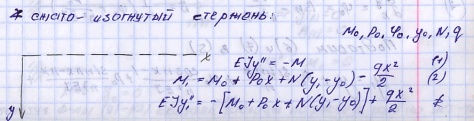 сжато-изогнутый стержень:
M₀, P₀, φ₀, y₀, N, q
x
EJy" = -M (1)
y
M₁ = M₀ + P₀x + N(y₁-y₀) - qx²/2 (2)
EJy₁" = -[M₀ + P₀x + N(y₁-y₀)] + qx²/2